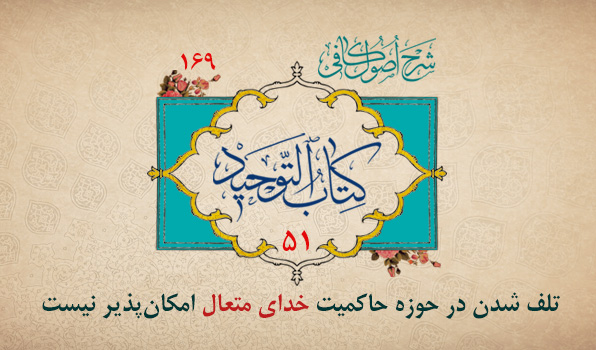 شرح اصول کافی
۱۶۹
کتاب التوحید
۵۱
تلف شدن در حوزه حاکمیت خدای متعال امکان‌پذیر نیست